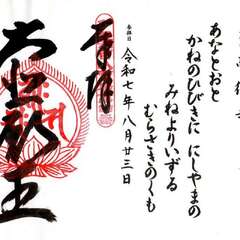 あなとおと
かねのひびきに にしやまの
みねよりいずる
むらさきのくも
参拝日
令和七年八月廿三日
奉拝